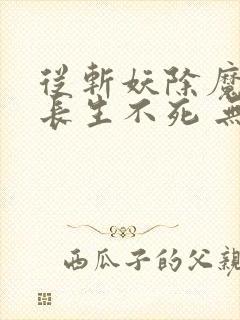 從斬妖除魔
長生不死 無
西瓜子的父親